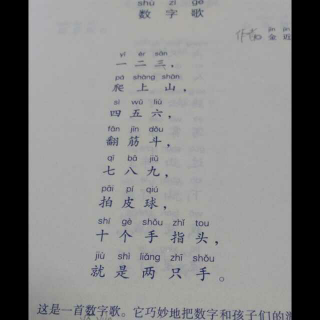 shù zì gē
数字歌
金近
yī èr sān
一二三，
pá shàng shān
爬上山，
sì wǔ liù
四五六，
fān jīn dǒu
翻筋斗，
qī bā jiǔ
七八九，
pāi pí qiú
拍皮球，
shí gè shǒu zhǐ tou
十个手指头，
jiù shì liǎng zhī shǒu
就是两只手。
这是一首数字歌。它巧妙地把数字和孩子们的